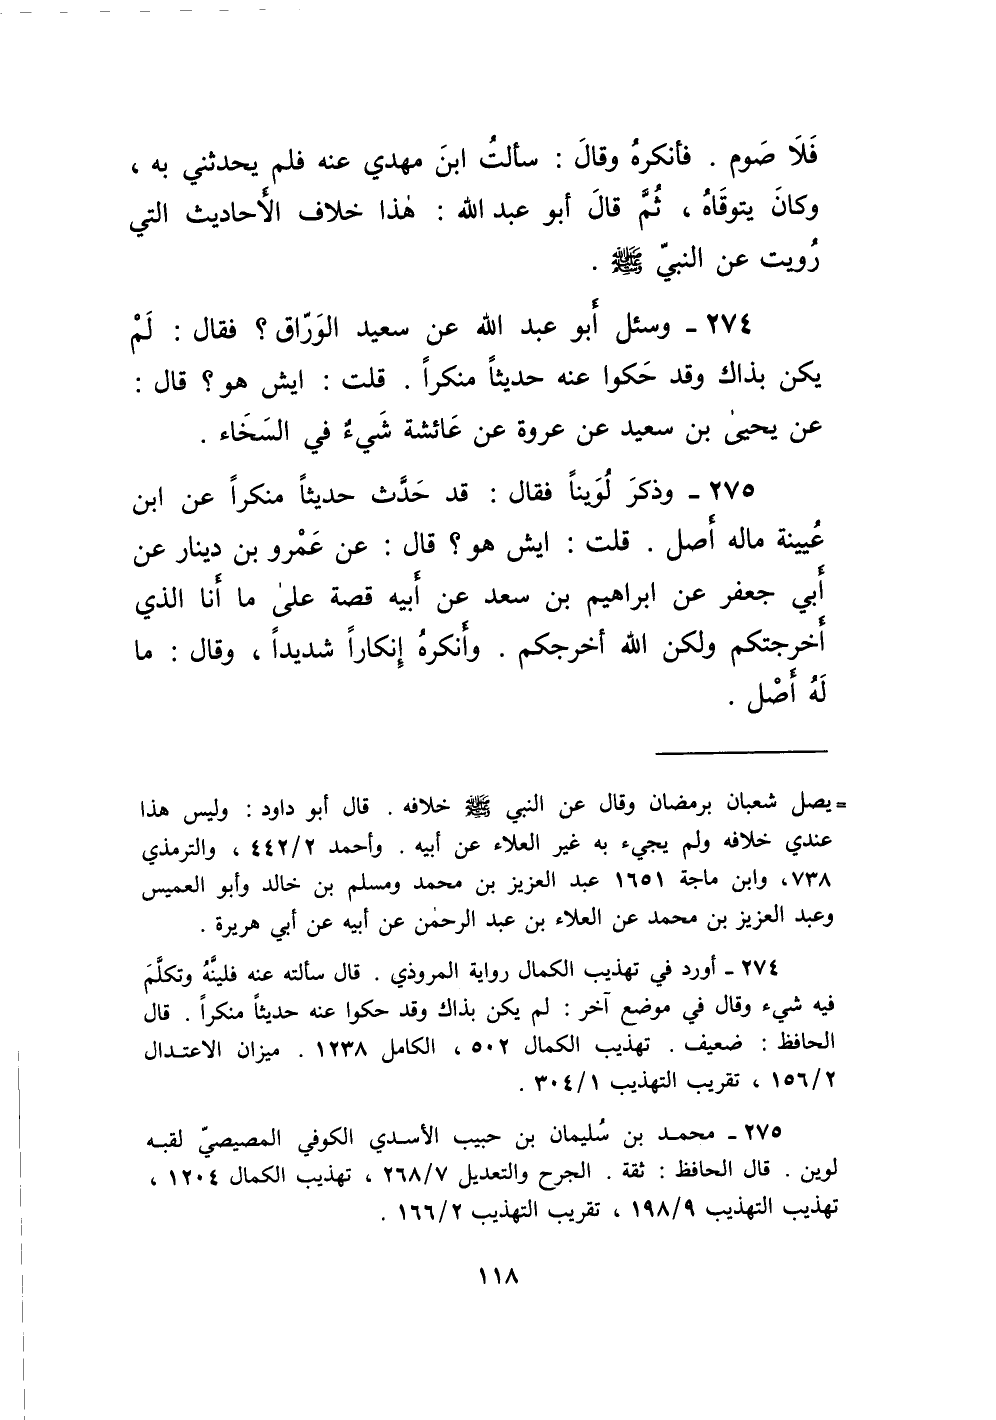 فَلَا صَوم . فأنكرهُ وقالَ : سألتُ ابنَ مهدي عنه فلم يحدثني به ،
وكانَ يتوقَاهُ ، ثُمَّ قالَ أبو عبد الله : هٰذا خلاف الأَحاديث التي
رُويت عن النبيّ ﷺ .
٢٧٤ ـ وسئل أَبو عبد الله عن سعيد الوَرّاق ؟ فقال : لَمْ
يكن بذاك وقد حَكوا عنه حديثاً منكراً . قلت : ايش هو ؟ قال :
عن يحيىٰ بن سعيد عن عروة عن عَائشة شَيءٌ في السَخَاء .
٢٧٥ ـ وذكرَ لُوَيناً فقال : قد حَدَّث حديثاً منكراً عن ابن
عُيينة ماله أَصل . قلت : ايش هو ؟ قال : عن عَمْرو بن دينار عن
أَبي جعفر عن ابراهيم بن سعد عن أَبيه قصة علىٰ ما أَنا الذي
أَخرجتكم ولكن الله أخرجكم . وأَنكرهُ إِنكاراً شديداً ، وقال : ما
لَهُ أَصْل .
= يصل شعبان برمضان وقال عن النبي ﷺ خلافه . قال أبو داود : وليس هذا
عندي خلافه ولم يجيء به غير العلاء عن أبيه . وأحمد ٤٤٢/٢ ، والترمذي
٧٣٨، وابن ماجة ١٦٥١ عبد العزيز بن محمد ومسلم بن خالد وأبو العميس
وعبد العزيز بن محمد عن العلاء بن عبد الرحمٰن عن أبيه عن أبي هريرة .
٢٧٤ ـ أورد في تهذيب الكمال رواية المروذي . قال سألته عنه فلينَّهُ وتكلَّمَ
فيه شيء وقال في موضع آخر : لم يكن بذاك وقد حكوا عنه حديثاً منكراً . قال
الحافظ : ضعيف . تهذيب الكمال ٥٠٢ ، الكامل ١٢٣٨ . ميزان الاعتـدال
١٥٦/٢ ، تقريب التهذيب ٣٠٤/١ .
٢٧٥ ـ محمـد بن سُليمان بن حبيب الأسـدي الكوفي المصيصيّ لقبـه
لوين . قال الحافظ : ثقة . الجرح والتعديل ٢٦٨/٧ ، تهذيب الكمال ١٢٠٤ ،
تهذيب التهذيب ١٩٨/٩ ، تقريب التهذيب ١٦٦/٢ .
١١٨